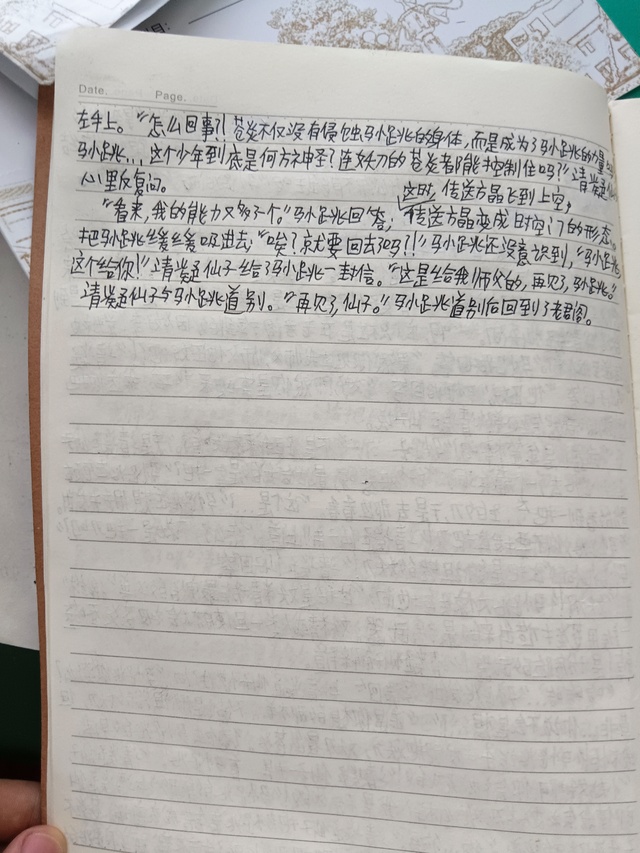 Date. Page.
左手上。“怎么回事?!苍炎不仅没有侵蚀马小跳的身体,而是成为了马小跳的力量
马小跳...这个少年到底是何方神圣?连妖刀的苍炎都能控制住吗?”清
心里反复问。
这时,传送方晶飞到上空,
“看来,我的能力又多了个。”马小跳回答,传送方晶变成时空门的形态
把马小跳缓缓吸进去,“唉?就要回去了吗?!”马小跳还没意识到,“马小跳
这个给你!”清仙子给了马小跳一封信。“这是给我师父的,再见了,马小跳。”
清仙子与马小跳道别。“再见了,仙子。”马小跳道别后回到了老君阁。